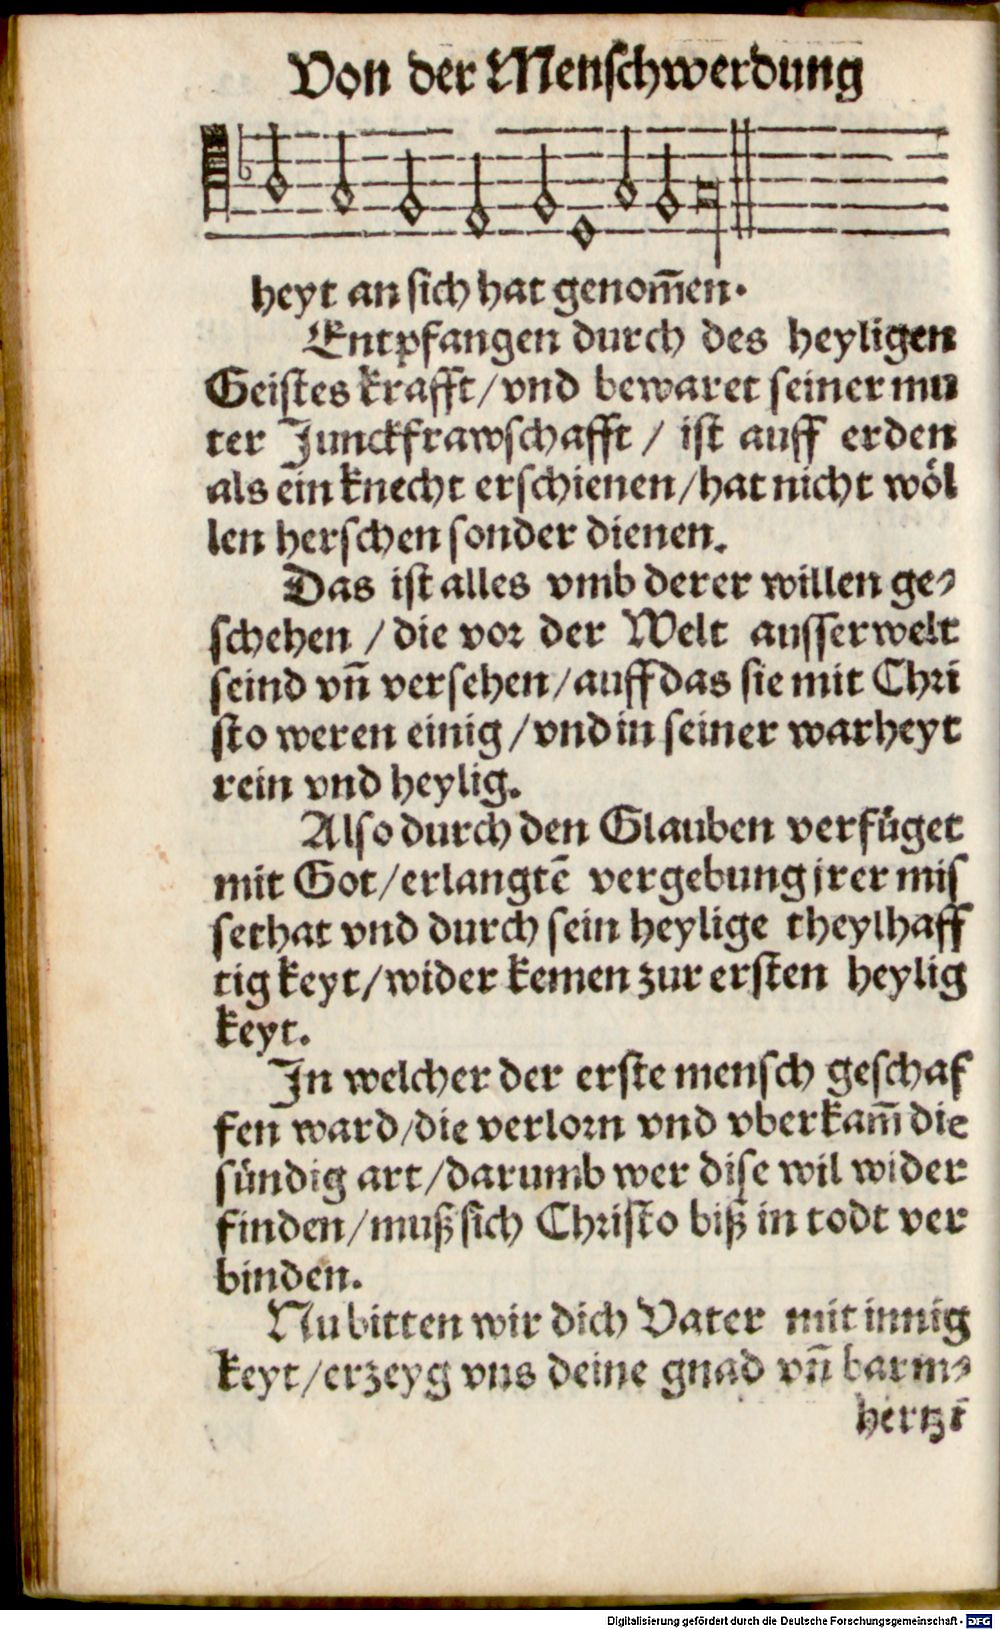 Von der Menschwerdung
heyt an sich hat genom̃en.
Entpfangen durch des heyligen
Geistes krafft/vnd bewaret seiner mu
ter Junckfrawschafft / ist auff erden
als ein knecht erschienen/hat nicht wöl
len herschen sonder dienen.
Das ist alles vmb derer willen ge-
schehen / die vor der Welt ausserwelt
seind vñ versehen/auff das sie mit Chri
sto weren einig/vnd in seiner warheyt
rein vnd heylig.
Also durch den Glauben verfüget
mit Got/erlangtē vergebung jrer mis
sethat vnd durch sein heylige theylhaff
tigkeyt/wider kemen zur ersten heylig
keyt.
In welcher der erste mensch geschaf
fen ward/die verlorn vnd vberkam̃ die
sündig art/darumb wer dise wil wider
finden/muß sich Christo biß in todt ver
binden.
Nu bitten wir dich Vater mit innig
keyt/erzeyg vns deine gnad vñ barm-
hertzi
Digitalisierung gefördert durch die Deutsche Forschungsgemeinschaft - DFG